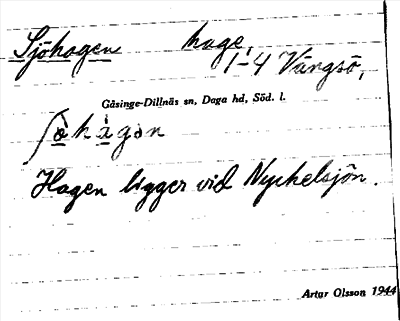 Sjöhagen hage,
1-4 Vängsö,
Gåsinge-Dillnäs sn, Daga hd, Söd. l.
ʃö̀hàgən
Hagen ligger vid Nyckelsjön.
Artur Olsson 1944